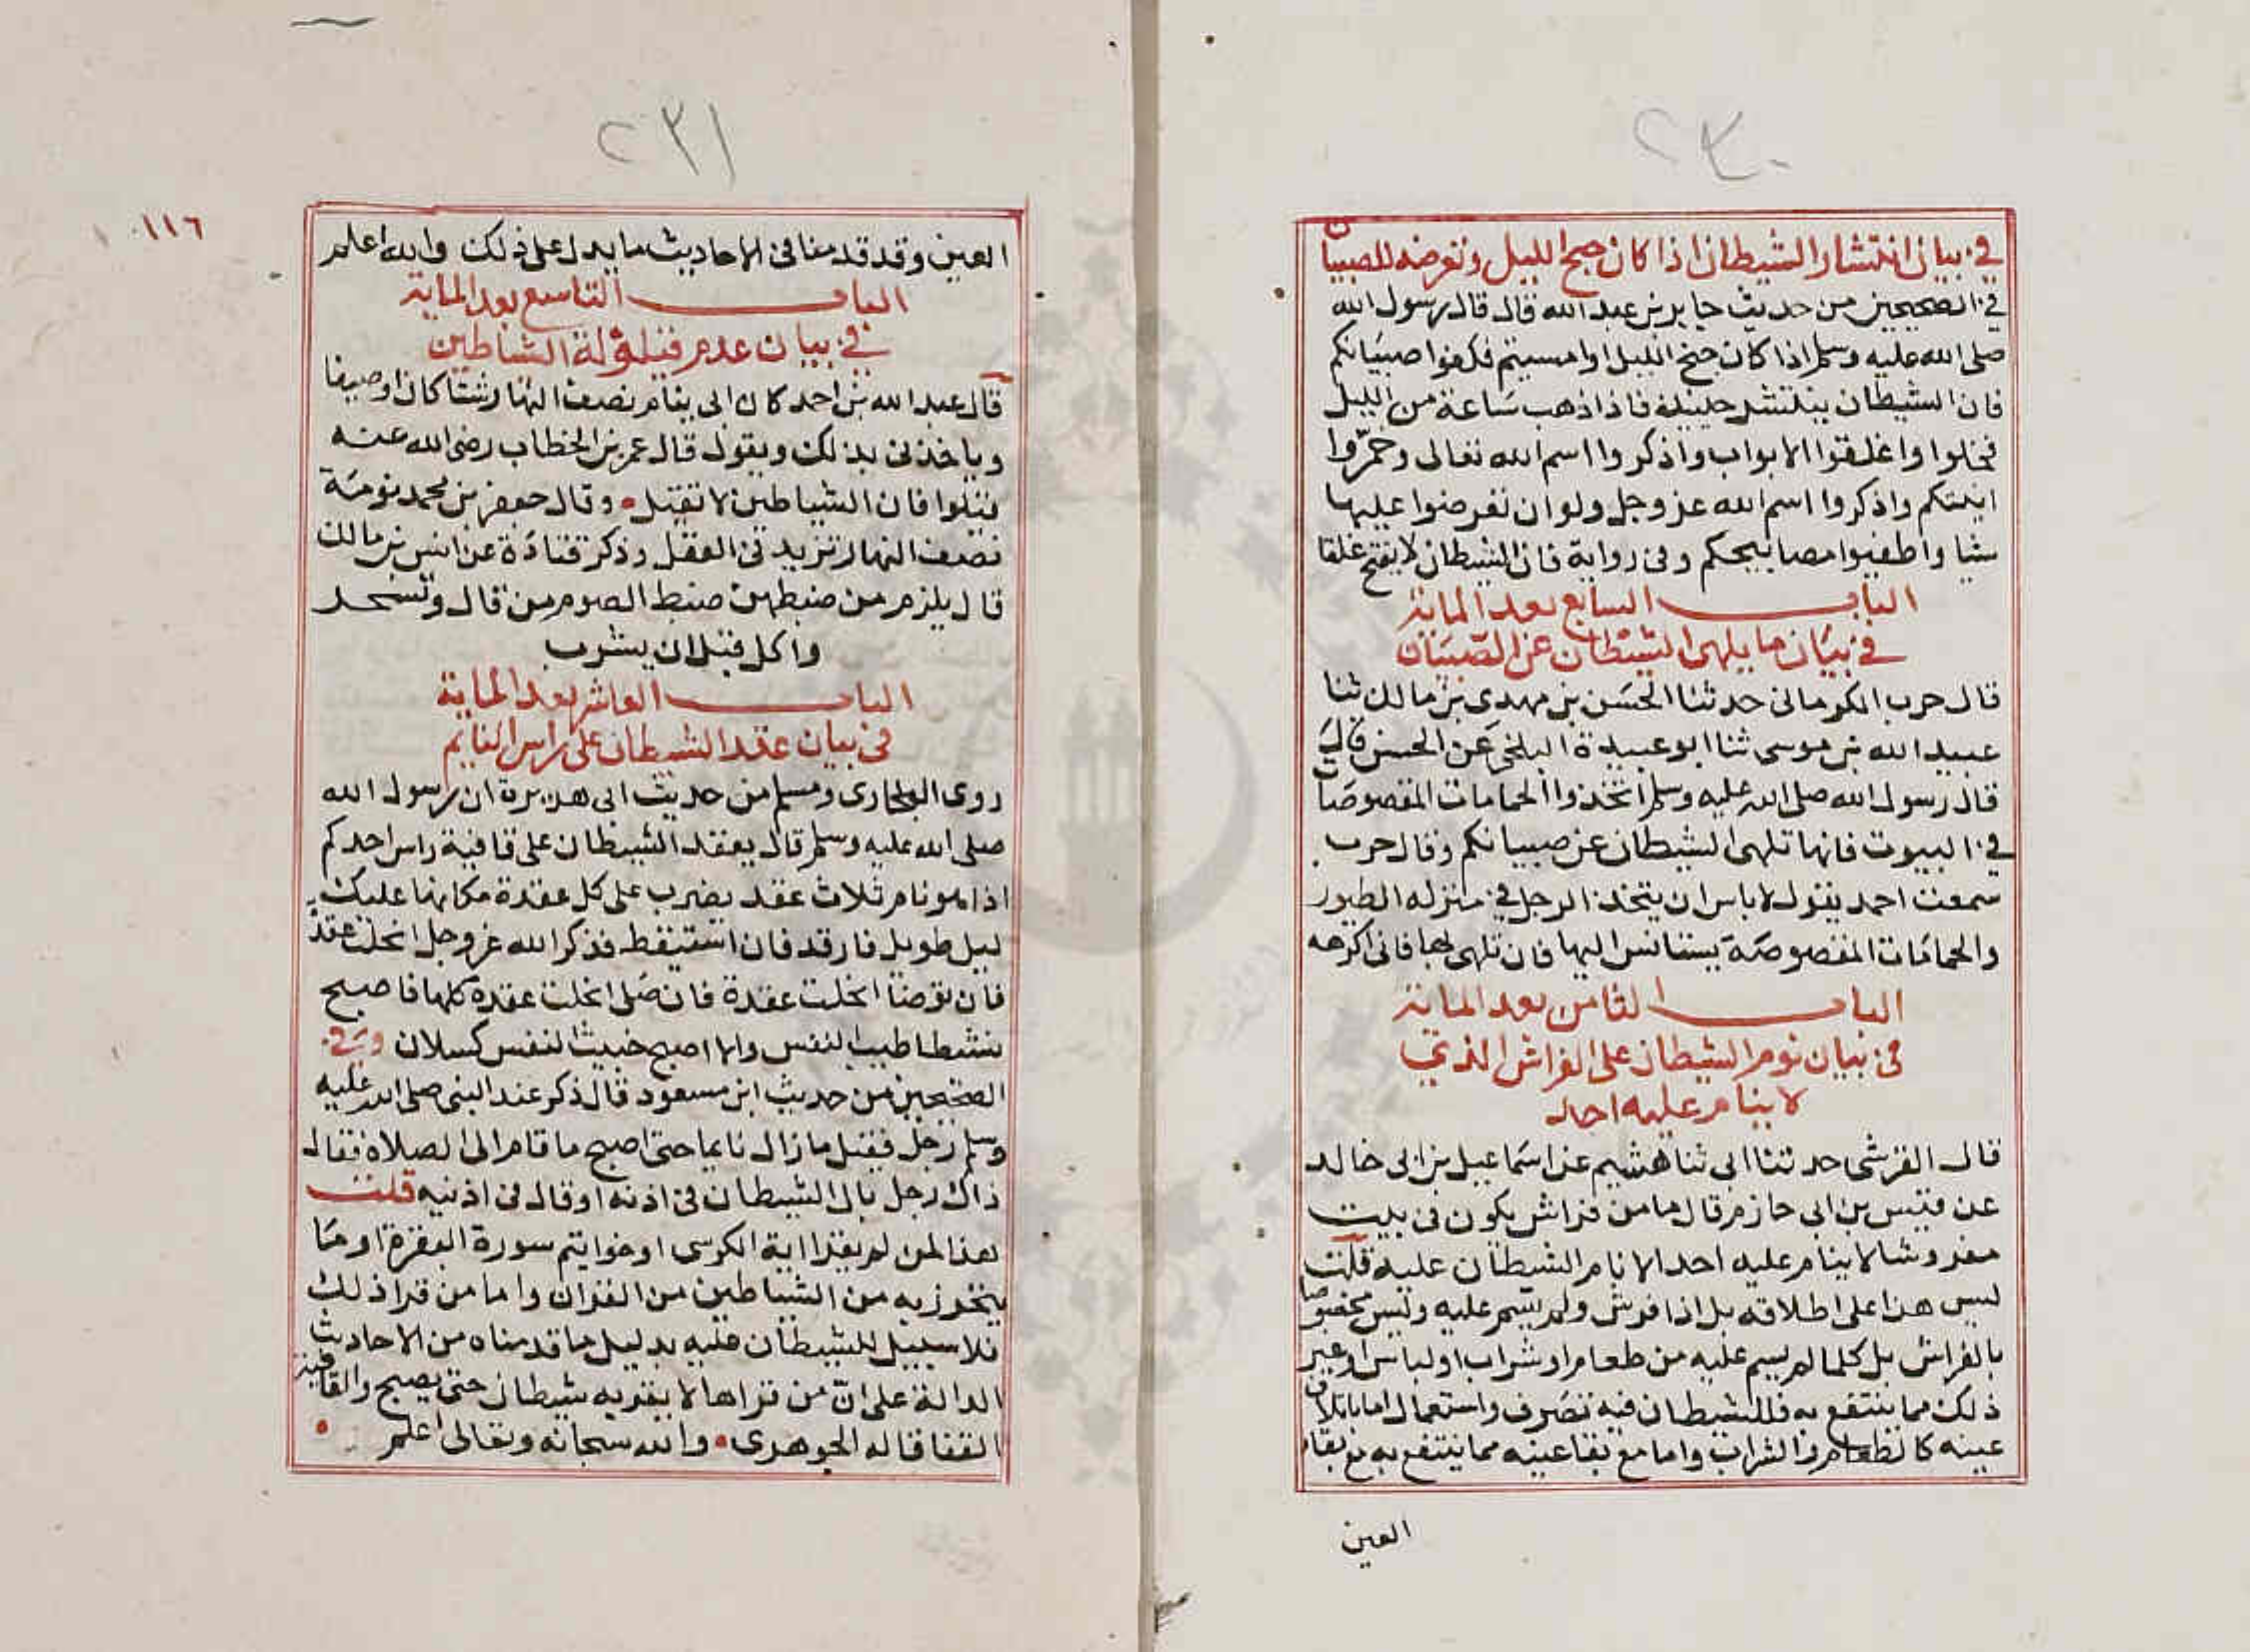 ٢٣٠
في بيان انتشار الشيطان اذا كان جنح الليل وتعرضه للصبيان
في الصحيحين من حديث جابر بن عبد الله قال قال رسول الله
صلى الله عليه وسلم اذا كان جنح الليل او امسيتم فكفوا صبيانكم
فان الشيطان ينتشر حينئذ فاذا ذهب ساعة من الليل
فخلوا واغلقوا الابواب واذكروا اسم الله تعالى وخمروا
انيتكم واذكروا اسم الله عز وجل ولو ان تعرضوا عليها
شيا واطفيوا مصابيحكم وفي رواية فان الشيطان لا يفتح غلقا
الباب السابع بعد الماية
في بيان ما يلهى الشيطان عن الصبيان
قال حرب الكرماني حدثنا الحسن بن مهدي بن مالك ثنا
عبيد الله بن موسى ثنا ابو عبيدة البلخى عن الحسن قال
قال رسول الله صلى الله عليه وسلم اتخذوا الحمامات المقصوصات
في البيوت فانها تلهى الشيطان عن صبيانكم وقال حرب
سمعت احمد يقول لا باس ان يتخذ الرجل في منزله الطيور
والحمامات المقصوصة يستانس اليها فان تلهى بها فاني اكرهه
الباب الثامن بعد الماية
في بيان نوم الشيطان على الفراش الذي
لا ينام عليه احد
قال القرشي حدثنا ابي ثنا هشيم عن اسماعيل بن ابي خالد
عن قيس بن ابي حازم قال ما من فراش يكون في بيت
مفروشا لا ينام عليه احد الا نام الشيطان عليه قلت
ليس هذا على اطلاقه بل اذا فرش ولم يسم عليه وليس مخصوصا
بالفراش بل كلما لم يسم عليه من طعام او شراب او لباس او غير
ذلك مما ينتفع به فللشيطان فيه تصرف واستعمال اما باتلاف
عينه كالطعام والشراب واما مع بقا عينه مما ينتفع به مع بقاء
العين
٢٣١
١١٦
العين وقد قدمنا في الاحاديث ما يدل على ذلك والله اعلم
الباب التاسع بعد الماية
في بيان عدم قيلولة الشياطين
قال عبد الله بن احمد كان ابي ينام نصف النهار شتا كان او صيفا
وياخذني بذلك ويقول قال عمر بن الخطاب رضي الله عنه
قيلوا فان الشياطين لا تقيل وقال جعفر بن محمد نومة
نصف النهار تزيد في العقل وذكر قتادة عن انس بن مالك
قال يلزم من ضبطهن ضبط الصوم من قال وتسحر
واكل قبل ان يشرب
الباب العاشر بعد الماية
في بيان عقد الشيطان على راس النايم
روى البخاري ومسلم من حديث ابي هريرة ان رسول الله
صلى الله عليه وسلم قال يعقد الشيطان على قافية راس احدكم
اذا هو نام ثلاث عقد يضرب على كل عقدة مكانها عليك
ليل طويل فارقد فان استيقظ فذكر الله عز وجل انحلت عقدة
فان توضا انحلت عقدة فان صلى انحلت عقدة كلها فاصبح
نشطا طيب النفس والا اصبح خبيث النفس كسلان وفي
الصحيحين من حديث ابن مسعود قال ذكر عند النبي صلى الله عليه
وسلم رجل فقيل ما زال نايما حتى اصبح ما قام الى الصلاة فقال
ذاك رجل بال الشيطان في اذنه او قال في اذنيه قلت
هذا لمن لم يقرا اية الكرسي او خواتيم سورة البقرة او ما
يتحرز به من الشياطين من القران واما من قرا ذلك
فلا سبيل للشيطان عليه بدليل ما قدمناه من الاحاديث
الدالة على ان من قراها لا يقربه شيطان حتى يصبح والقافية
القفا قاله الجوهري والله سبحانه وتعالى اعلم